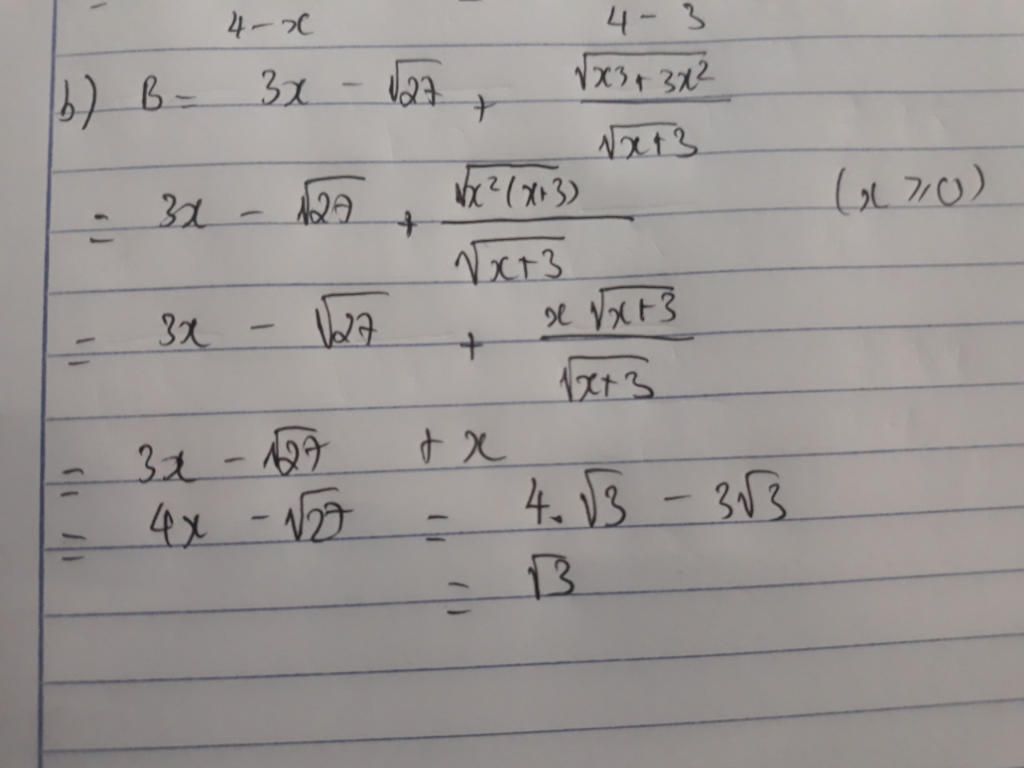 4-x 4-3
b) B = 3x - √27 + √(x3 + 3x²) / √(x+3)
= 3x - √27 + √(x²(x+3)) / √(x+3) (x ⩾ 0)
= 3x - √27 + x √(x+3) / √(x+3)
= 3x - √27 + x
= 4x - √27 = 4.√3 - 3√3
= √3